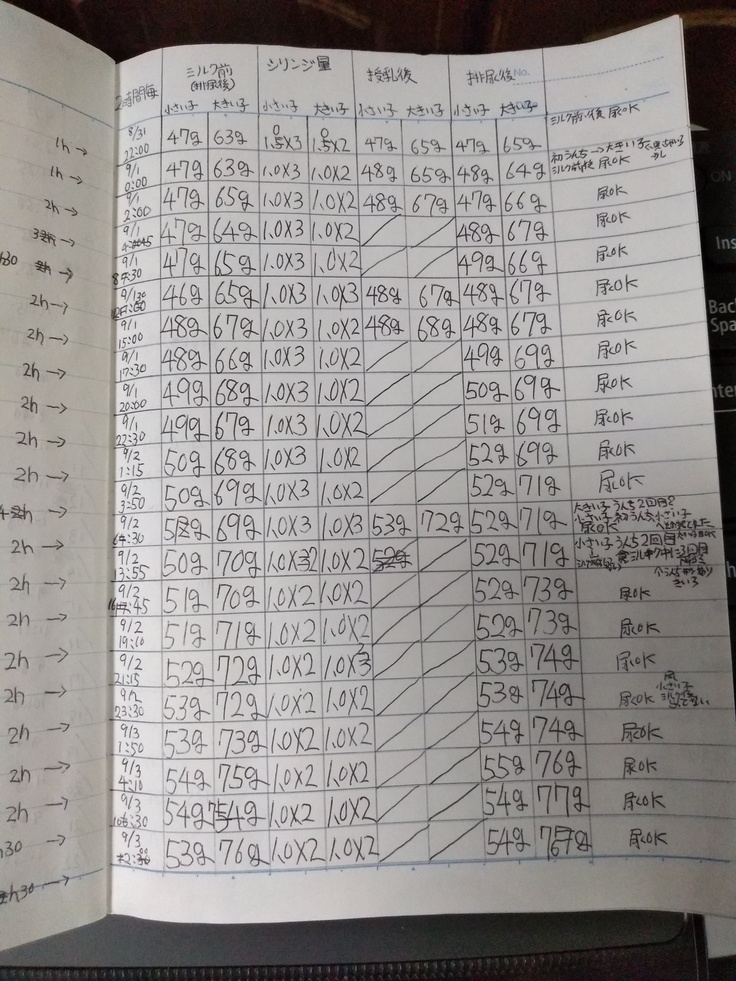 2時間毎 ミルク前 (排尿後) シリンジ量 授乳後 排尿後 No.
小さい子 大きい子 小さい子 大きい子 小さい子 大きい子 小さい子 大きい子
8/31 22:00 47g 63g 1.5×3 1.5×2 47g 65g 47g 65g ミルク前・後 尿OK
1h→ 9/1 0:00 47g 63g 1.0×3 1.0×2 48g 65g 48g 64g 初うんち→大きい子 ミルク前後 尿OK
1h→ 9/1 2:00 47g 65g 1.0×3 1.0×2 48g 67g 47g 66g 尿OK
2h→ 9/1 47g 64g 1.0×3 1.0×2 48g 67g 尿OK
9/1 47g 65g 1.0×3 1.0×2 49g 66g 尿OK
9/1 46g 65g 1.0×3 1.0×3 48g 67g 48g 67g 尿OK
2h→ 9/1 15:00 48g 67g 1.0×3 1.0×2 48g 68g 48g 67g 尿OK
2h→ 9/1 17:30 48g 66g 1.0×3 1.0×2 49g 69g 尿OK
2h→ 9/1 20:00 49g 68g 1.0×3 1.0×2 50g 69g 尿OK
2h→ 9/1 22:30 49g 67g 1.0×3 1.0×2 51g 69g 尿OK
2h→ 9/2 1:15 50g 68g 1.0×3 1.0×2 52g 69g 尿OK
2h→ 9/2 3:50 50g 69g 1.0×3 1.0×2 52g 71g 尿OK
9/2 69g 1.0×3 1.0×3 53g 72g 52g 71g 大きい子 うんち2回目 小さい子 初うんち 尿OK
2h→ 9/2 13:55 50g 70g 1.0×2 1.0×2 52g 71g 小さい子 うんち2回目
2h→ 9/2 51g 70g 1.0×2 1.0×2 52g 73g 尿OK
2h→ 9/2 19:10 51g 71g 1.0×2 1.0×2 52g 73g 尿OK
2h→ 9/2 21:15 52g 72g 1.0×2 53g 74g 尿OK
2h→ 9/2 23:30 53g 72g 1.0×2 1.0×2 53g 74g 尿OK 小さい子
2h→ 9/3 1:50 53g 73g 1.0×2 1.0×2 54g 74g 尿OK
2h→ 9/3 4:10 54g 75g 1.0×2 1.0×2 55g 76g 尿OK
2h→ 9/3 54g 1.0×2 1.0×2 54g 77g 尿OK
9/3 53g 76g 1.0×2 1.0×2 54g 尿OK
ON
Ins
Back
Spa
nter